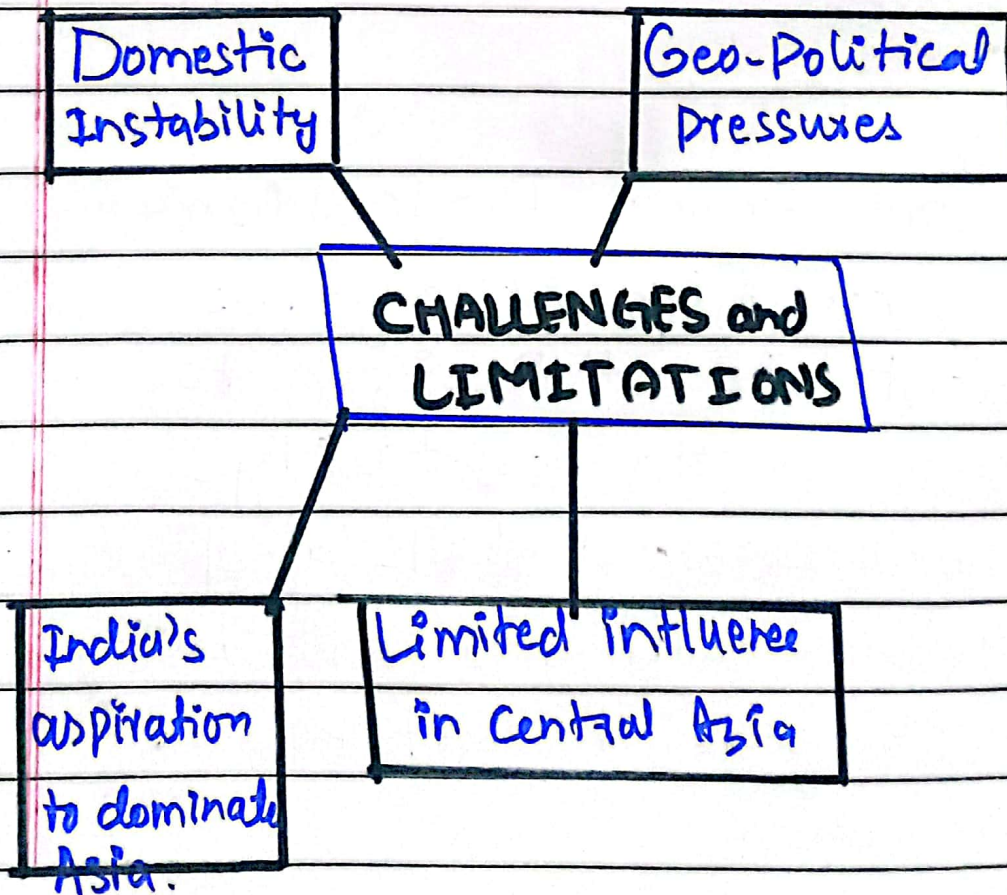 Domestic
Instability
Geo-Political
Pressures
CHALLENGES and
LIMITATIONS
India's
aspiration
to dominate
Asia.
Limited influence
in Central Asia